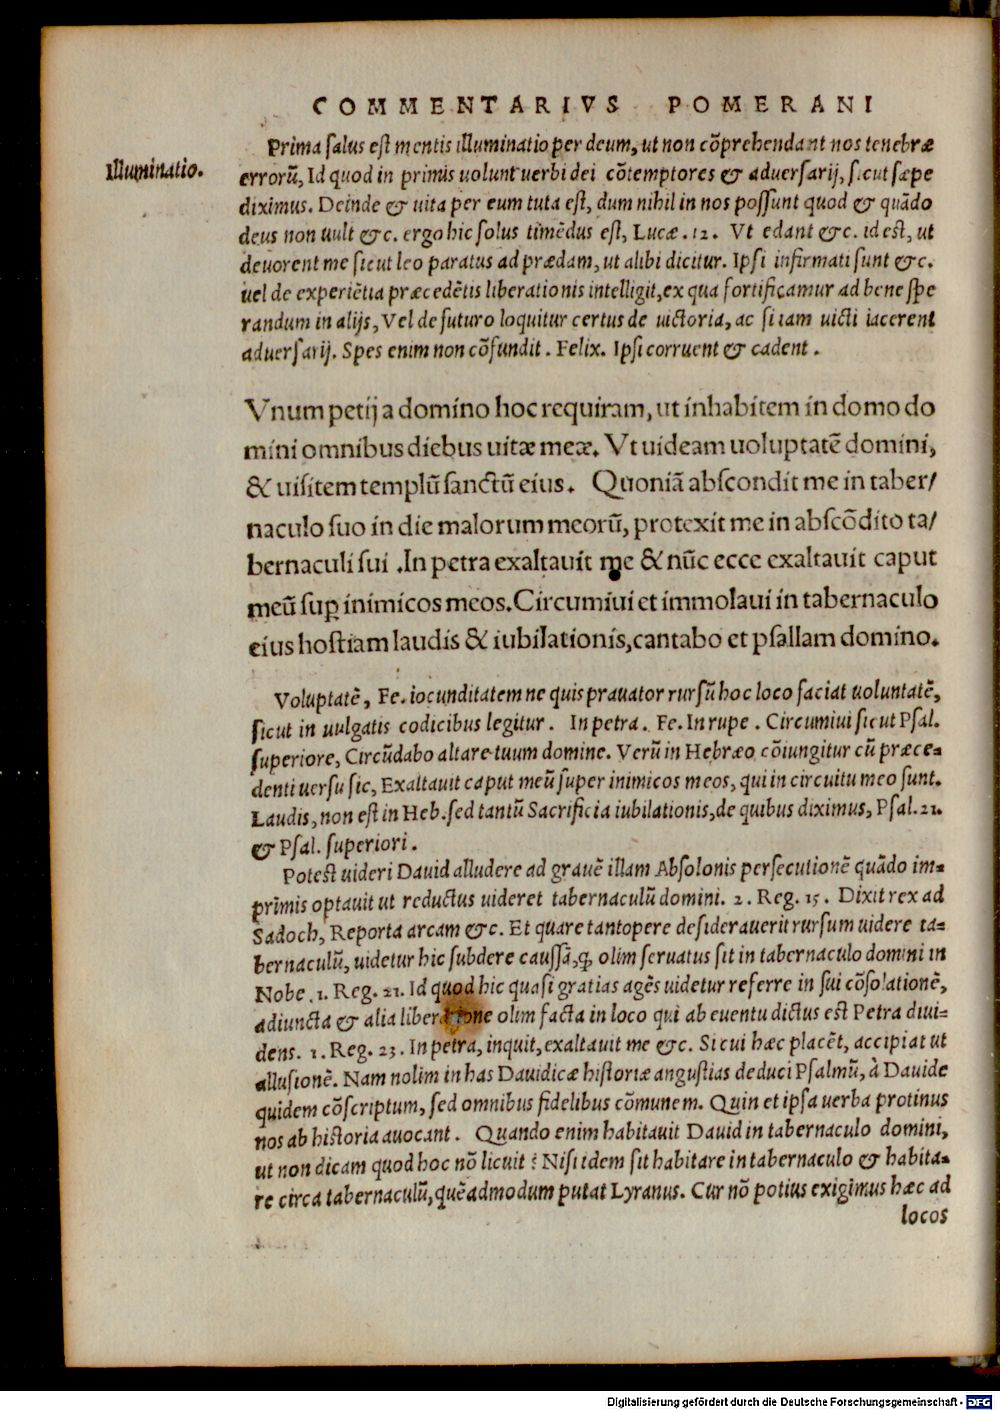 COMMENTARIVS POMERANI
Prima salus est mentis illuminatio per deum, ut non cõprehendant nos tenebræ
Illuminatio.
errorũ, Id quod in primis uolunt uerbi dei cõtemptores & aduersarij, sicut sæpe
diximus. Deinde & uita per eum tuta est, dum nihil in nos possunt quod & quãdo
deus non uult &c. ergo hic solus timẽdus est, Lucæ . 12. Vt edant &c. id est, ut
deuorent me sicut leo paratus ad prædam, ut alibi dicitur. Ipsi infirmati sunt &c.
uel de experiẽtia præcedẽtis liberationis intelligit, ex qua fortificamur ad bene spe
randum in alijs, Vel de futuro loquitur certus de uictoria, ac si iam uicti iacerent
aduersarij. Spes enim non cõfundit. Felix. Ipsi corruent & cadent.
Vnum petij a domino hoc requiram, ut inhabitem in domo do
mini omnibus diebus uitæ meæ. Vt uideam uoluptatẽ domini,
& uisitem templũ sanctũ eius. Quoniã abscondit me in taber/
naculo suo in die malorum meorũ, protexit me in abscõdito ta/
bernaculi sui .In petra exaltauit me & nũc ecce exaltauit caput
meũ suꝑ inimicos meos. Circumiui et immolaui in tabernaculo
eius hostiam laudis & iubilationis, cantabo et psallam domino.
Voluptatẽ, Fe. iocunditatem ne quis prauator rursũ hoc loco faciat uoluntatẽ,
sicut in uulgatis codicibus legitur. In petra. Fe. In rupe. Circumiui sicut Psal.
superiore, Circũdabo altare tuum domine. Verũ in Hebræo cõiungitur cũ præce-
denti uersu sic, Exaltauit caput meũ super inimicos meos, qui in circuitu meo sunt.
Laudis, non est in Heb. sed tantũ Sacrificia iubilationis, de quibus diximus, Psal. 21.
& Psal. superiori.
Potest uideri Dauid alludere ad grauẽ illam Absolonis persecutionẽ quãdo im-
primis optauit ut reductus uideret tabernaculũ domini. 2. Reg. 15. Dixit rex ad
Sadoch, Reporta arcam &c. Et quare tantopere desiderauerit rursum uidere ta-
bernaculũ, uidetur hic subdere caussã, ꝙ olim seruatus sit in tabernaculo domini in
Nobe. 1. Reg. 21. Id quod hic quasi gratias agẽs uidetur referre in sui cõsolationẽ,
adiuncta & alia liberatione olim facta in loco qui ab euentu dictus est Petra diui-
dens. 1. Reg. 23. In petra, inquit, exaltauit me &c. Si cui hæc placẽt, accipiat ut
allusionẽ. Nam nolim in has Dauidicæ historiæ angustias deduci Psalmũ, à Dauide
quidem cõscriptum, sed omnibus fidelibus cõmunem. Quin et ipsa uerba protinus
nos ab historia auocant. Quando enim habitauit Dauid in tabernaculo domini,
ut non dicam quod hoc nõ licuit? Nisi idem sit habitare in tabernaculo & habita-
re circa tabernaculũ, quẽadmodum putat Lyranus. Cur nõ potius exigimus hæc ad
locos
Digitalisierung gefördert durch die Deutsche Forschungsgemeinschaft - DFG